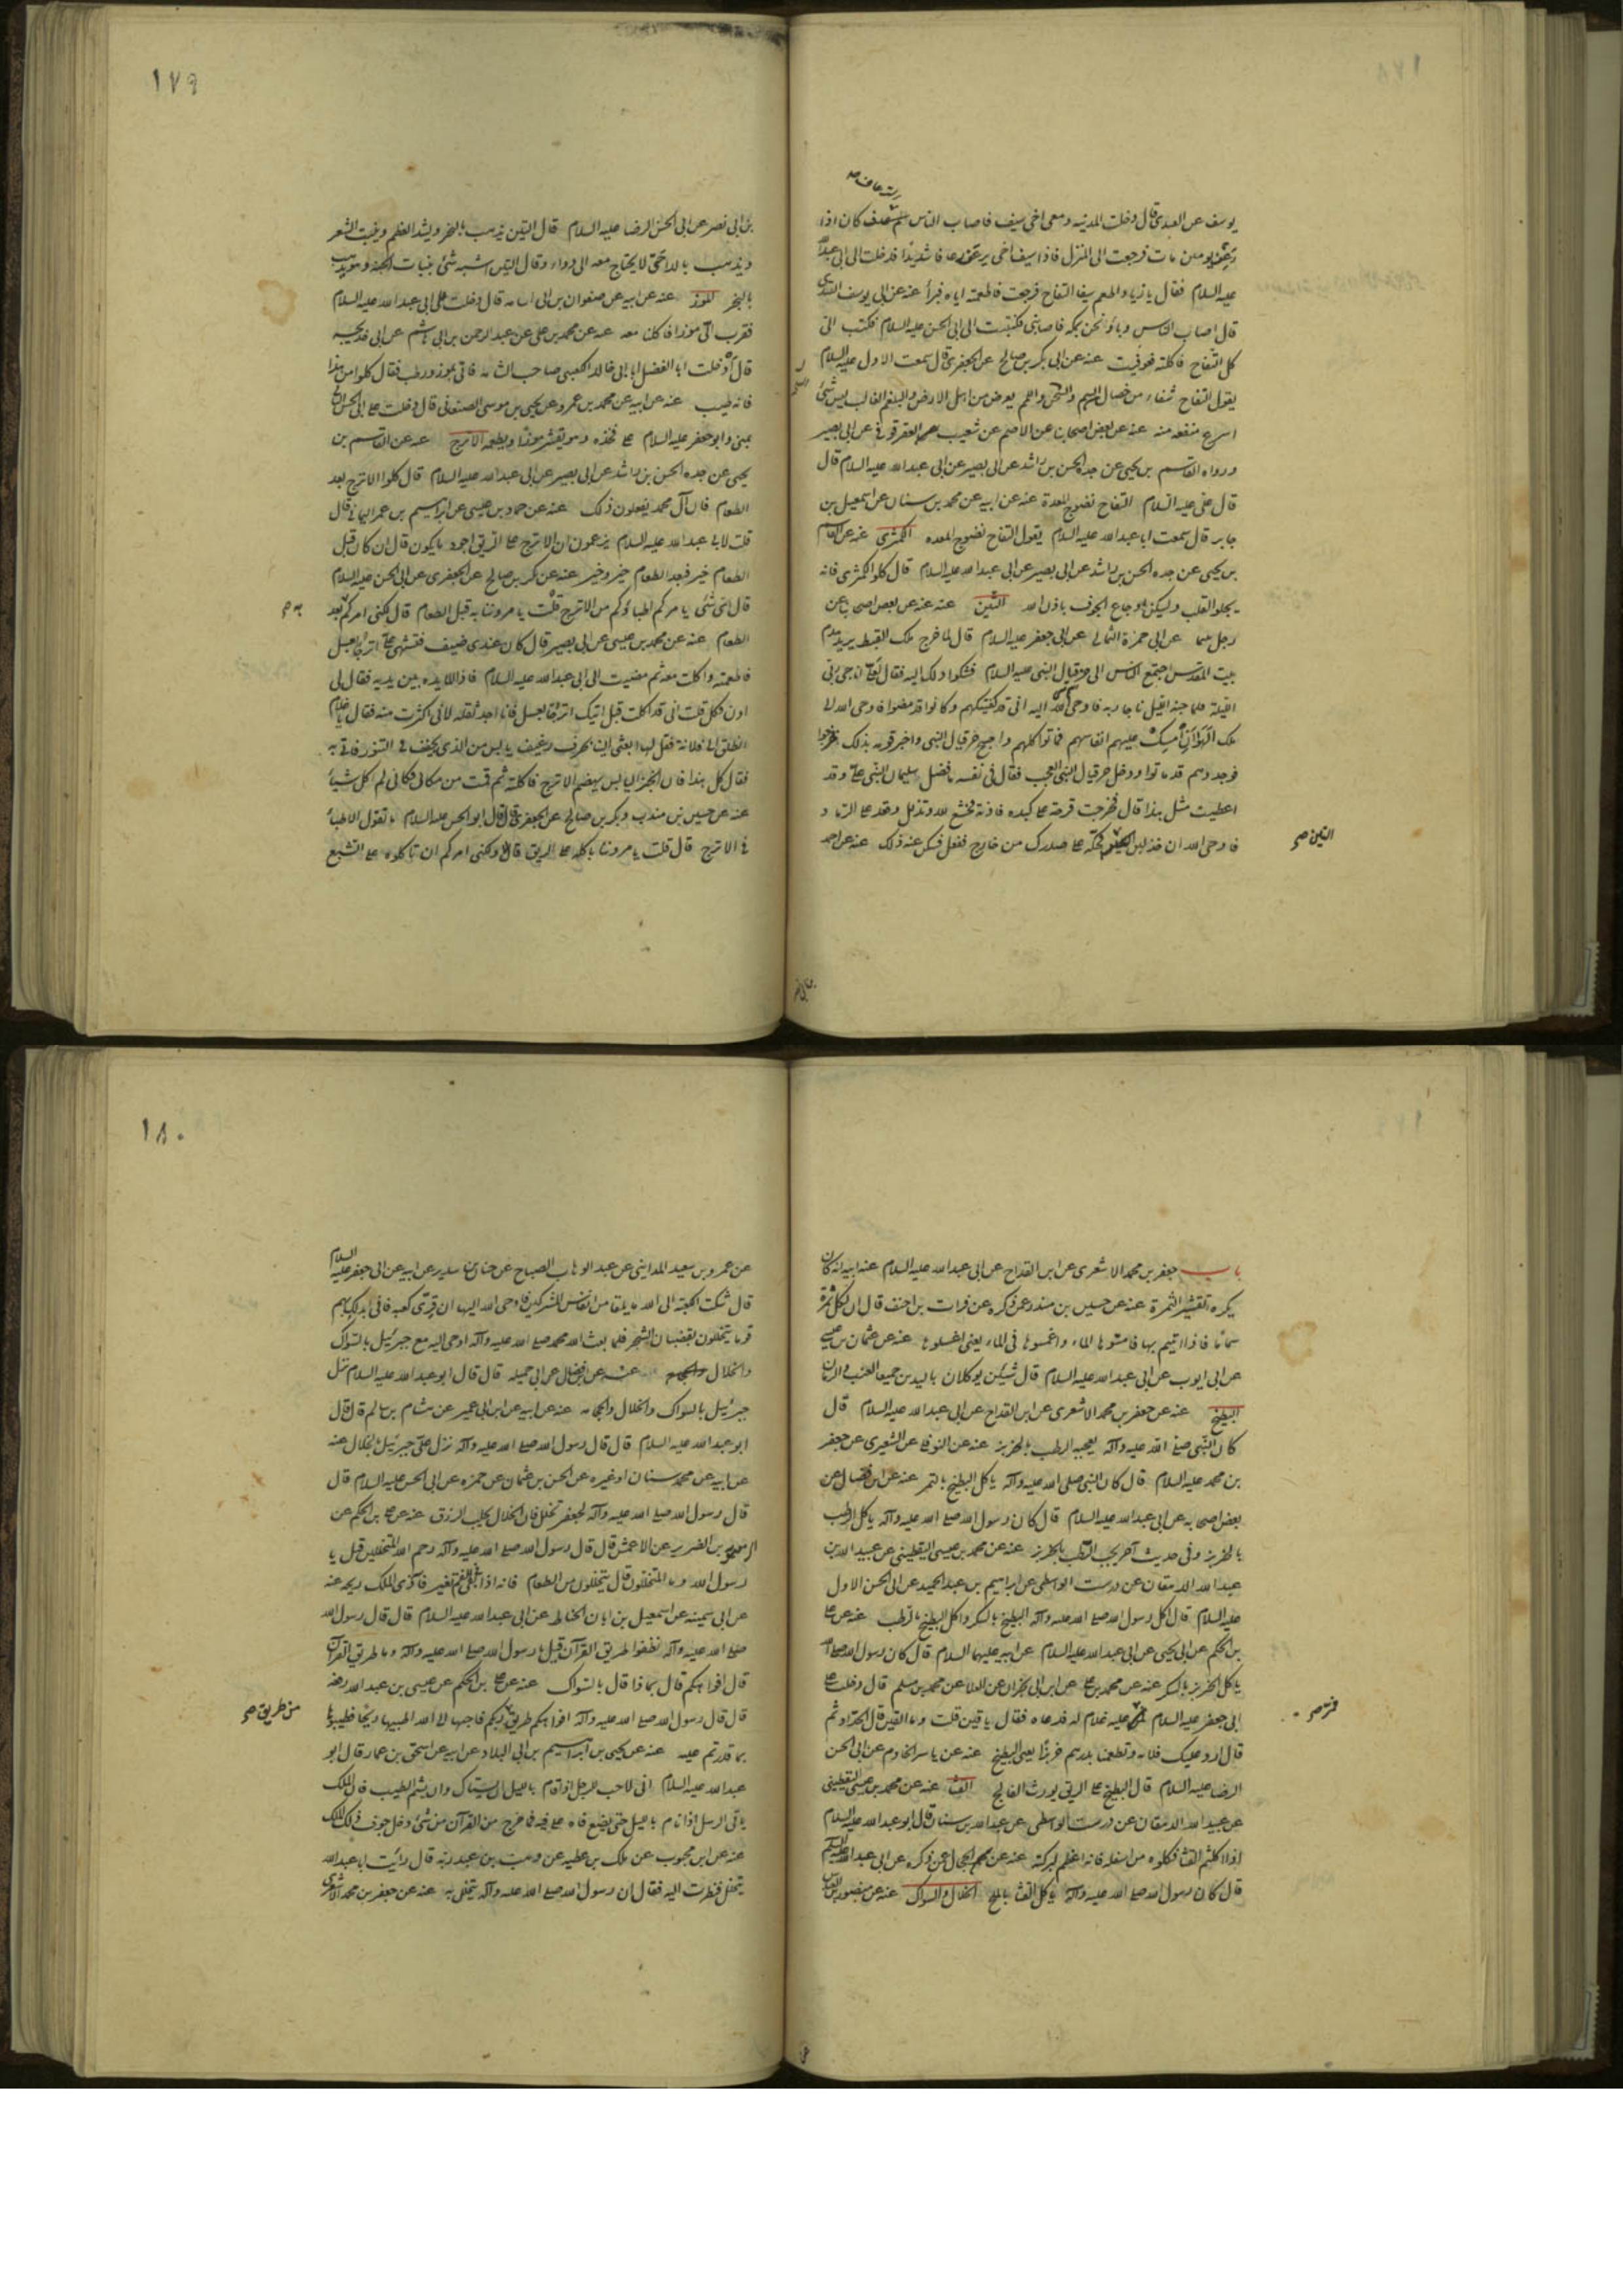 يوسف عن العبدى قال دخلت المدينه ومعى اخى سيف فاصاب الناس رعاف كان اذا
رعف يومين مات فرجعت الى المنزل فاذا سيف اخى يرعف رعافا شديدا فدخلت الى ابى عبد الله
عليه السلام فقال يا زياد اطعم سيفا التفاح فرجعت فاطعمته اياه فبرأ عنه عن ابى يوسف القندى
قال اصاب الناس وباء ونحن بمكه فاصابنى فكتبت الى ابى الحسن عليه السلام فكتب الى
كل التفاح فاكلته فعوفيت عنه عن ابى بكر بن صالح عن الجعفرى قال سمعت الاول عليه السلام
يقول التفاح شفاء من خصال السم والسحر واللمم يعرض من اهل الارض والبلغم الغالب ليس شئ
اسرع منفعه منه عنه عن بعض اصحابنا عن الاصم عن شعيب العقرقوفى عن ابى بصير
ورواه القاسم بن يحيى عن جده الحسن بن راشد عن ابى بصير عن ابى عبد الله عليه السلام قال
قال على عليه السلام التفاح نضوح المعدة عنه عن ابيه عن محمد بن سنان عن اسمعيل بن
جابر قال سمعت ابا عبد الله عليه السلام يقول التفاح نضوح المعده الكمثرى عنه عن القاسم
بن يحيى عن جده الحسن بن راشد عن ابى بصير عن ابى عبد الله عليه السلام قال كلوا الكمثرى فانه
يجلو القلب ويسكن اوجاع الجوف باذن الله التين عنه عن بعض اصحابنا عن
رجل سما عن ابى حمزة الثمالى عن ابى جعفر عليه السلام قال لما خرج ملك القبط يريد هدم
بيت المقدس اجتمع الناس الى حزقيل النبى عليه السلام فشكوا ذلك اليه فقال لعلى اناجى ربى
الليلة فلما جنه الليل ناجا ربه فاوحى الله اليه انى قد كفيتكهم وكانوا قد مضوا فاوحى الله الى
ملك الهواء ان امسك عليهم انفاسهم فماتوا كلهم واصبح حزقيل النبى واخبر قومه بذلك فخرجوا
فوجدوهم قد ماتوا ودخل حزقيل النبى العجب فقال فى نفسه ما فضل سليمان النبى على وقد
اعطيت مثل هذا قال فخرجت قرحة على كبده فاذته فخشع لله وتذلل وقعد على الرماد
فاوحى الله ان خذ لبن التين فحكه على صدرك من خارج ففعل فسكن عنه ذلك عنه عن احمد
التين صح
١٧٩
بن ابى نصر عن ابى الحسن الرضا عليه السلام قال التين يذهب بالبخر ويشد العظم وينبت الشعر
ويذهب بالداء حتى لا يحتاج معه الى دواء وقال التين اشبه شئ بنبات الجنة وهو يذهب
بالبخر الموز عنه عن ابيه عن صفوان بن ابى اسامه قال دخلت على ابى عبد الله عليه السلام
فقرب الى موزا فاكلنا معه عنه عن محمد بن على عن عبد الرحمن بن ابى هاشم عن ابى خديجه
قال دخلت ابا الفضل ابا ابى خالد الكعبى صاحب الشامه فاتى بموز ورطب فقال كلوا من هذا
فانه طيب عنه عن ابيه عن محمد بن عمرو عن يحيى بن موسى الصنعانى قال دخلت على ابى الحسن الرضا
بمنى وابو جعفر عليه السلام على فخذه وهو يقشر موزا ويطعمه الاترج عنه عن القاسم بن
يحيى عن جده الحسن بن راشد عن ابى بصير عن ابى عبد الله عليه السلام قال كلوا الاترج بعد
الطعام فان آل محمد يفعلون ذلك عنه عن حماد بن عيسى عن ابراهيم بن عمر اليمانى قال
قلت لابى عبد الله عليه السلام يزعمون ان الاترج على الريق اجود ما يكون قال ان كان قبل
الطعام خير فبعد الطعام خير وخير عنه عن بكر بن صالح عن الجعفرى عن ابى الحسن عليه السلام
قال اى شئ يامركم اطباؤكم من الاترج قلت يامروننا به قبل الطعام قال لكنى امركم بعد
به صح
الطعام عنه عن محمد بن عيسى عن ابى بصير قال كان عندى ضيف فتشهى على اترجا بعسل
فاطعمته واكلت معه ثم مضيت الى ابى عبد الله عليه السلام فاذا المايده بين يديه فقال لى
ادن فكل قلت انى قد اكلت قبل اتيك اترجا بعسل فانا اجد ثقله لانى اكثرت منه فقال يا غلام
انطلق الى فلانة فقل لها ابعثى الينا بحرف رغيف يابس من الذى يجفف فى التنور فاتى به
فقال كل هذا فان الخبز اليابس يهضم الاترج فاكلته ثم قمت من مكانى فكانى لم اكل شيئا
عنه عن حسين بن منذر وبكر بن صالح عن الجعفرى قال قال ابو الحسن عليه السلام ما تقول الاطباء
فى الاترج قال قلت يامروننا باكله على الريق قال ولكنى امركم ان تاكلوه على الشبع
باب جعفر بن محمد الاشعرى عن ابن القداح عن ابى عبد الله عليه السلام عنه ابيه انه كان
يكره تقشير الثمرة عنه عن حسين بن منذر عمن ذكره عن فرات بن احنف قال ان لكل ثمرة
سماما فاذا اتيتم بها فامسوها الماء واغمسوها فى الماء يعنى اغسلوها عنه عن عثمان بن عيسى
عن ابى ايوب عن ابى عبد الله عليه السلام قال شيئان يوكلان باليدين جميعا العنب والرمان
البطيخ عنه عن جعفر بن محمد الاشعرى عن ابن القداح عن ابى عبد الله عليه السلام قال
كان النبى صلى الله عليه وآله يعجبه الرطب بالخربز عنه عن النوفلى عن الشعيرى عن جعفر
بن محمد عليه السلام قال كان النبى صلى الله عليه وآله ياكل البطيخ بالتمر عنه عن ابن فضال عن
بعض اصحابه عن ابى عبد الله عليه السلام قال كان رسول الله صلى الله عليه وآله ياكل الرطب
بالخربز وفى حديث آخر يحب الرطب بالخربز عنه عن محمد بن عيسى اليقطينى عن عبيد الله بن
عبد الله الدهقان عن درست الواسطى عن ابراهيم بن عبد الحميد عن ابى الحسن الاول
عليه السلام قال اكل رسول الله صلى الله عليه وآله البطيخ بالسكر واكل البطيخ بالرطب عنه عن على
بن الحكم عن ابى يحيى عن ابى عبد الله عليه السلام عن ابيه عليهما السلام قال كان رسول الله صلى الله
ياكل الخربز بالسكر عنه عن محمد بن على عن ابن ابى نجران عن العلا عن محمد بن مسلم قال دخلت على
ابى جعفر عليه السلام عليه غلام له فدعاه فقال يا قين قلت وما القين قال الحداد ثم
قال اردد عليك فلانه وتطعمنا بدرهم خربزا يعنى البطيخ عنه عن ياسر الخادم عن ابى الحسن
الرضا عليه السلام قال البطيخ على الريق يورث الفالج القثا عنه عن محمد بن عيسى اليقطينى
عن عبيد الله الدهقان عن درست الواسطى عن عبد الله بن سنان قال ابو عبد الله عليه السلام
اذا اكلتم القثا فكلوه من اسفله فانه اعظم لبركته عنه عن الحجال عمن ذكره عن ابى عبد الله عليه السلام
قال كان رسول الله صلى الله عليه وآله ياكل القثا بالملح الخلال والسواك عنه عن منصور بن العباس
١٨٠
عن عمرو بن سعيد المداينى عن عبد الوهاب الصباح عن حنان بن سدير عن ابيه عن ابى جعفر عليه السلام
قال شكت الكعبة الى الله ما يلقا من انفاس المشركين فاوحى الله اليها ان قرى كعبه فانى ابدلك بهم
قوما يتخللون بقضبان الشجر فلما بعث الله محمد صلى الله عليه وآله اوحى اليه مع جبرئيل بالسواك
والخلال عنه عن ابن فضال عن ابى جميله قال قال ابو عبد الله عليه السلام نزل
جبرئيل بالسواك والخلال والحجامه عنه عن ابيه عن ابن ابى عمير عن هشام بن سالم قال قال
ابو عبد الله عليه السلام قال قال رسول الله صلى الله عليه وآله نزل على جبرئيل بالخلال عنه
عن ابيه عن محمد سنان او غيره عن الحسن بن عثمان عن حمزه عن ابى الحسن عليه السلام قال
قال رسول الله صلى الله عليه وآله لجعفر تخلل فان الخلال يجلب الرزق عنه عن على بن الحكم عن
بن الضرير عن الاعمش قال قال رسول الله صلى الله عليه وآله رحم الله المتخللين قيل يا
رسول الله وما المتخللون قال يتخللون من الطعام فانه اذا بقى فى الفم تغير فآذى الملك ريحه عنه
عن ابى سمينه عن اسمعيل بن ابان الحناط عن ابى عبد الله عليه السلام قال قال رسول الله
صلى الله عليه وآله نظفوا طريق القرآن قيل يا رسول الله صلى الله عليه وآله وما طريق القرآن
قال افواهكم قال بماذا قال بالسواك عنه عن على بن الحكم عن عيسى بن عبد الله رفعه
قال قال رسول الله صلى الله عليه وآله افواهكم طريق ربكم فاحبها الى الله اطيبها ريحا فطيبوها
من طريق صح
بما قدرتم عليه عنه عن يحيى بن ابراهيم بن ابى البلاد عن ابيه عن اسحق بن عمار قال ابو
عبد الله عليه السلام انى لاحب للرجل اذا قام بالليل ان يستاك وان يشم الطيب فان الملك
ياتى الرجل اذا قام بالليل حتى يضع فاه على فيه فما خرج من القرآن من شئ دخل جوف ذلك الملك
عنه عن ابن محبوب عن ملك بن عطيه عن وهب بن عبد ربه قال رايت ابا عبد الله
يتخلل فنظرت اليه فقال ان رسول الله صلى الله عليه وآله يتخلل به عنه عن جعفر بن محمد الاشعرى